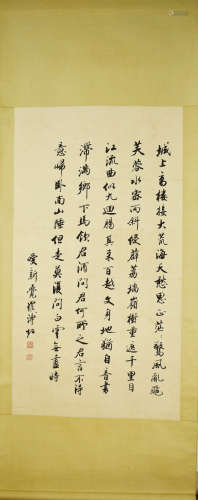 城上高樓接大荒海天愁思正茫驚風亂颭
芙蓉水密雨斜侵薜荔墻嶺樹重遮千里目
江流曲似九迴腸共來百越文身地猶自音書
滯鄉下馬飲君酒問君何所之君言不得
意歸臥南山陲但去莫復問白雲無盡時
愛新覺羅溥